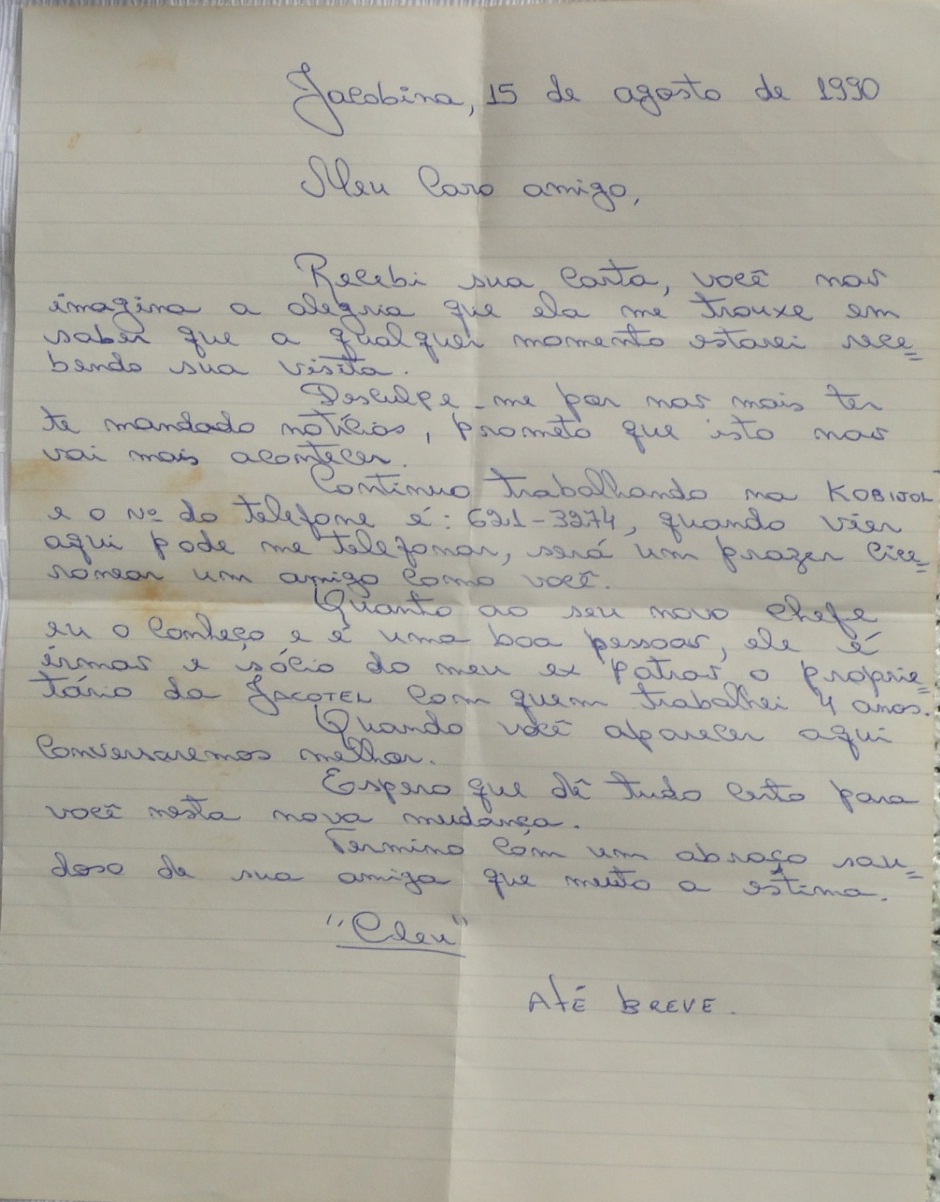 Jacobina, 15 de agosto de 1990
Meu Caro amigo,
Recebi sua Carta, você não
imagina a alegria que ela me trouxe em
saber que a qualquer momento estarei rece=
bendo sua visita.
Desculpe-me por não mais ter
te mandado notícias, prometo que isto não
vai mais acontecer.
Continuo trabalhando na
e o Nº do telefone é: 621-3274, quando vier
aqui pode me telefonar, será um prazer Cice=
ronear um amigo como você.
Quanto ao seu novo chefe
eu o Conheço e é uma boa pessoa, ele é
irmão e sócio do meu ex patrão o proprie=
tário da JACOTEL com quem trabalhei 4 anos.
Quando você aparecer aqui
Conversaremos melhor.
Espero que dê tudo certo para
você nesta nova mudança.
Termino com um abraço sau=
doso de sua amiga que muito a estima.
"Cleu"
ATÉ BREVE.